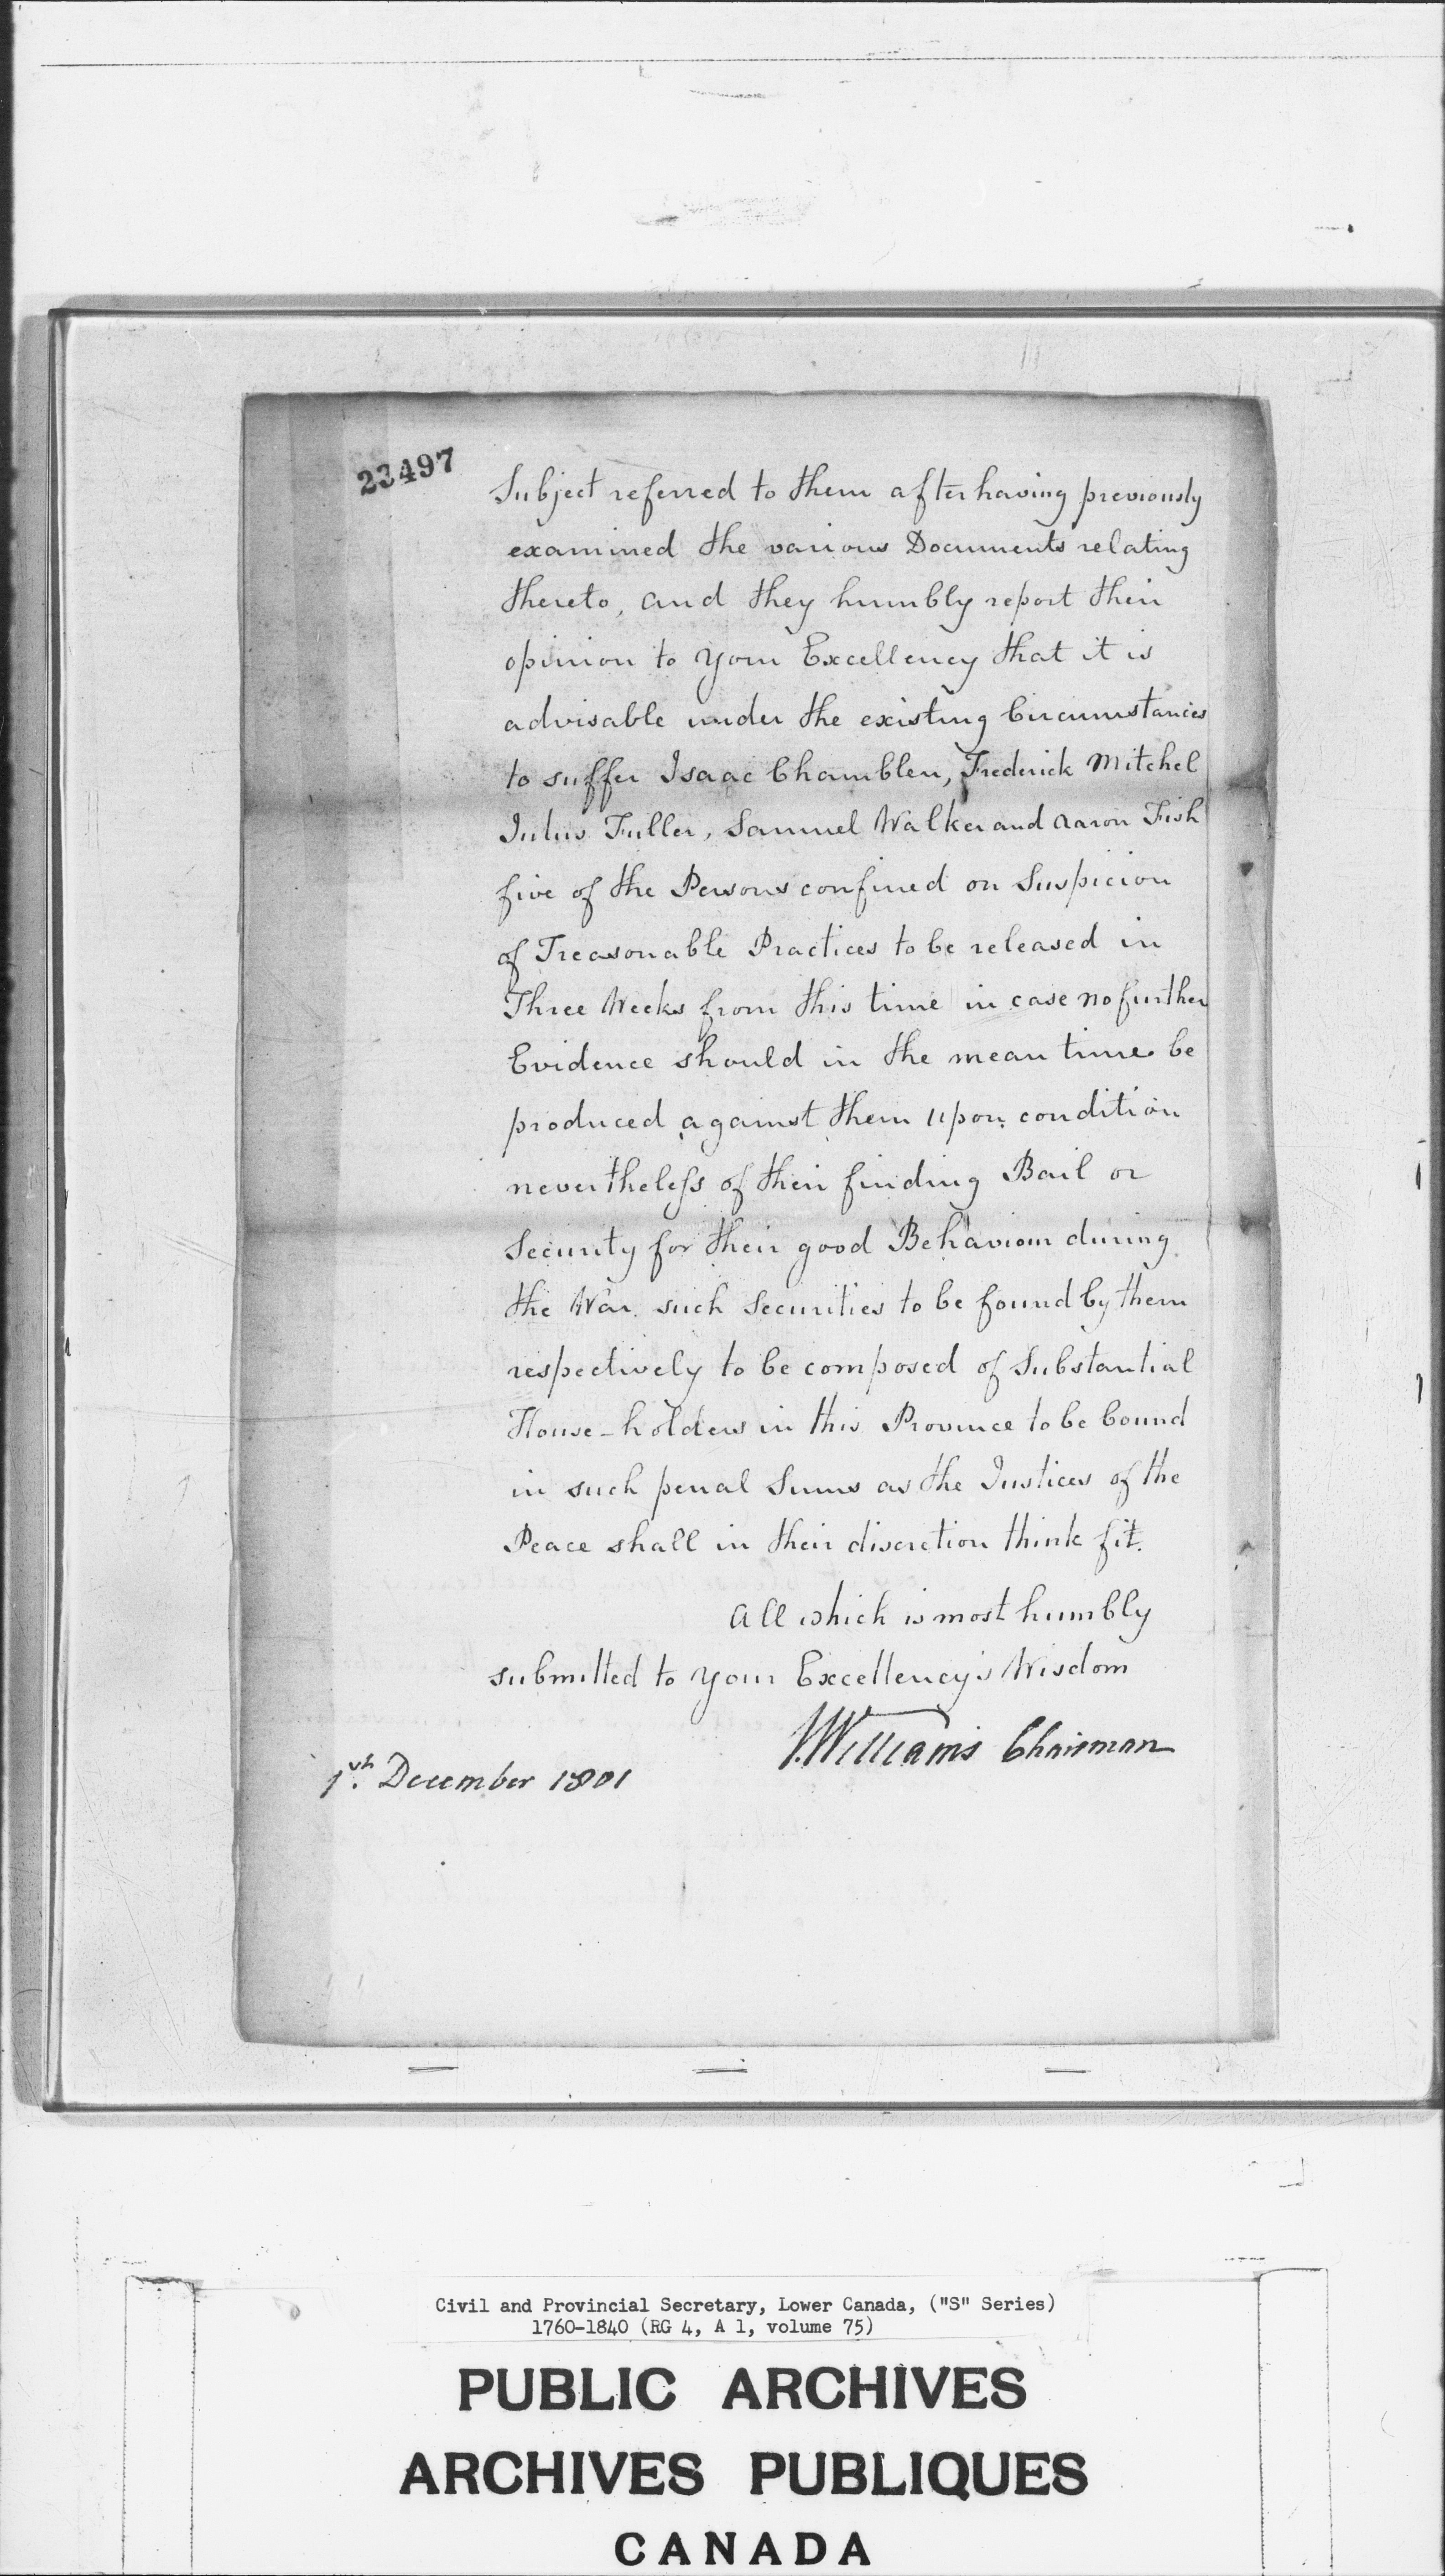 23497
Subject referred to them after having previously
examined the various Documents relating
thereto, and they humbly report their
opinion to Your Excellency that it is
advisable under the existing Circumstances
to suffer Isaac Chamblen, Frederick Mitchel
Julus Fuller, Samuel Walker and Aaron Fish
five of the Persons confined on Suspicion
of Treasonable Practices to be released in
Three Weeks from this time in case no further
Evidence should in the mean time be
produced against them upon condition
nevertheless of their finding Bail or
Security for their good Behaviour during
the War. such Securities to be found by them
respectively to be composed of Substantial
House-holders in this Province to be bound
in such penal Sums as the Justices of the
Peace shall in their discretion think fit.
All which is most humbly
submitted to Your Excellency's Wisdom
J. Williams Chairman
1st December 1801
Civil and Provincial Secretary, Lower Canada, ("S" Series)
1760-1840 (RG 4, A 1, volume 75)
PUBLIC ARCHIVES
ARCHIVES PUBLIQUES
CANADA